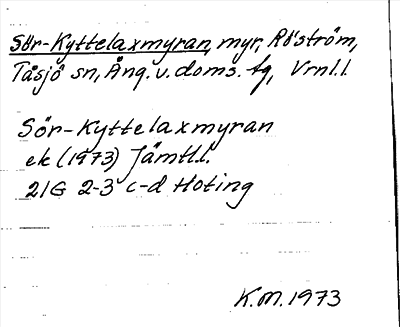 Sör-Kyttelaxmyran, myr, Röström,
Tåsjö sn, Ång. v. doms. tg, Vrnl.l.
Sör-Kyttelaxmyran
ek (1973) Jämtl.l.
21G 2-3 c-d Hoting
K.M. 1973